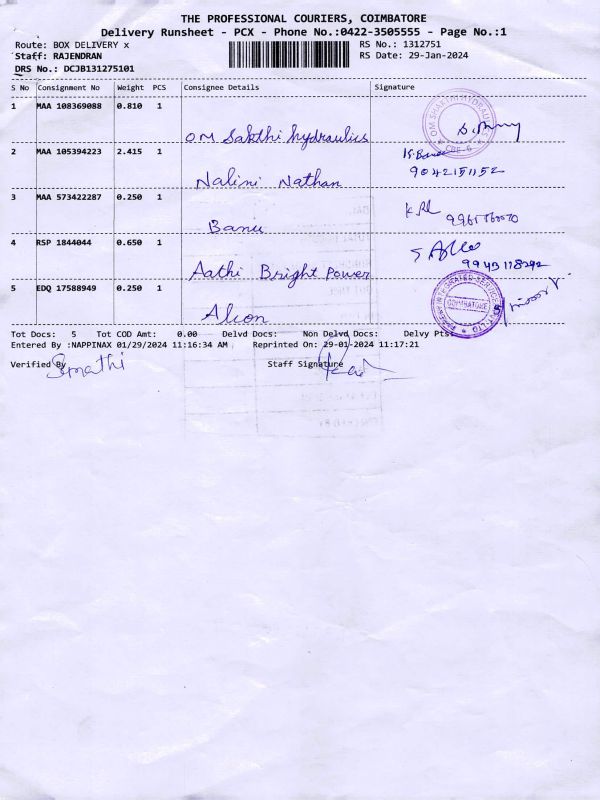 THE PROFESSIONAL COURIERS, COIMBATORE
Delivery Runsheet - PCX - Phone No.:0422-3505555 - Page No.:1
Route: BOX DELIVERY x RS No.: 1312751
Staff: RAJENDRAN RS Date: 29-Jan-2024
DRS No.: DCJB131275101
S No Consignment No Weight PCS Consignee Details Signature
1 MAA 108369088 0.810 1
OM Sakthi hydraulics
OM SHAKTHI HYDRAULICS
CBE-6
2 MAA 105394223 2.415 1
Nalini Nathan
9042151152
3 MAA 573422287 0.250 1
Banu
4 RSP 1844044 0.650 1
Aathi Bright Power
5 EDQ 17588949 0.250 1
Alion
COIMBATORE
Tot Docs: 5 Tot COD Amt: 0.00 Delvd Docs: Non Delvd Docs: Delvy Pts:
Entered By :NAPPINAX 01/29/2024 11:16:34 AM Reprinted On: 29-01-2024 11:17:21
Verified By Staff Signature